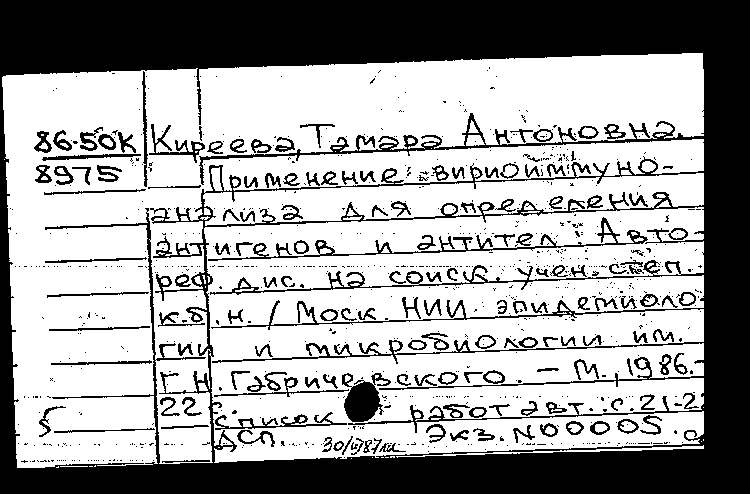 86-50К Киреева, Тамара Антоновна.
8975 Применение вириоиммуно-
анализа для определения
антигенов и антител : Авто-
реф. дис. на соиск. учен. степ.
к.б.н. / Моск. НИИ эпидемиоло-
гии и микробиологии им.
Г.Н. Габричевского. – М., 1986. –
22 с.
Список работ авт.: с. 21-22
ДСП. Экз. N00005.
30/ /87